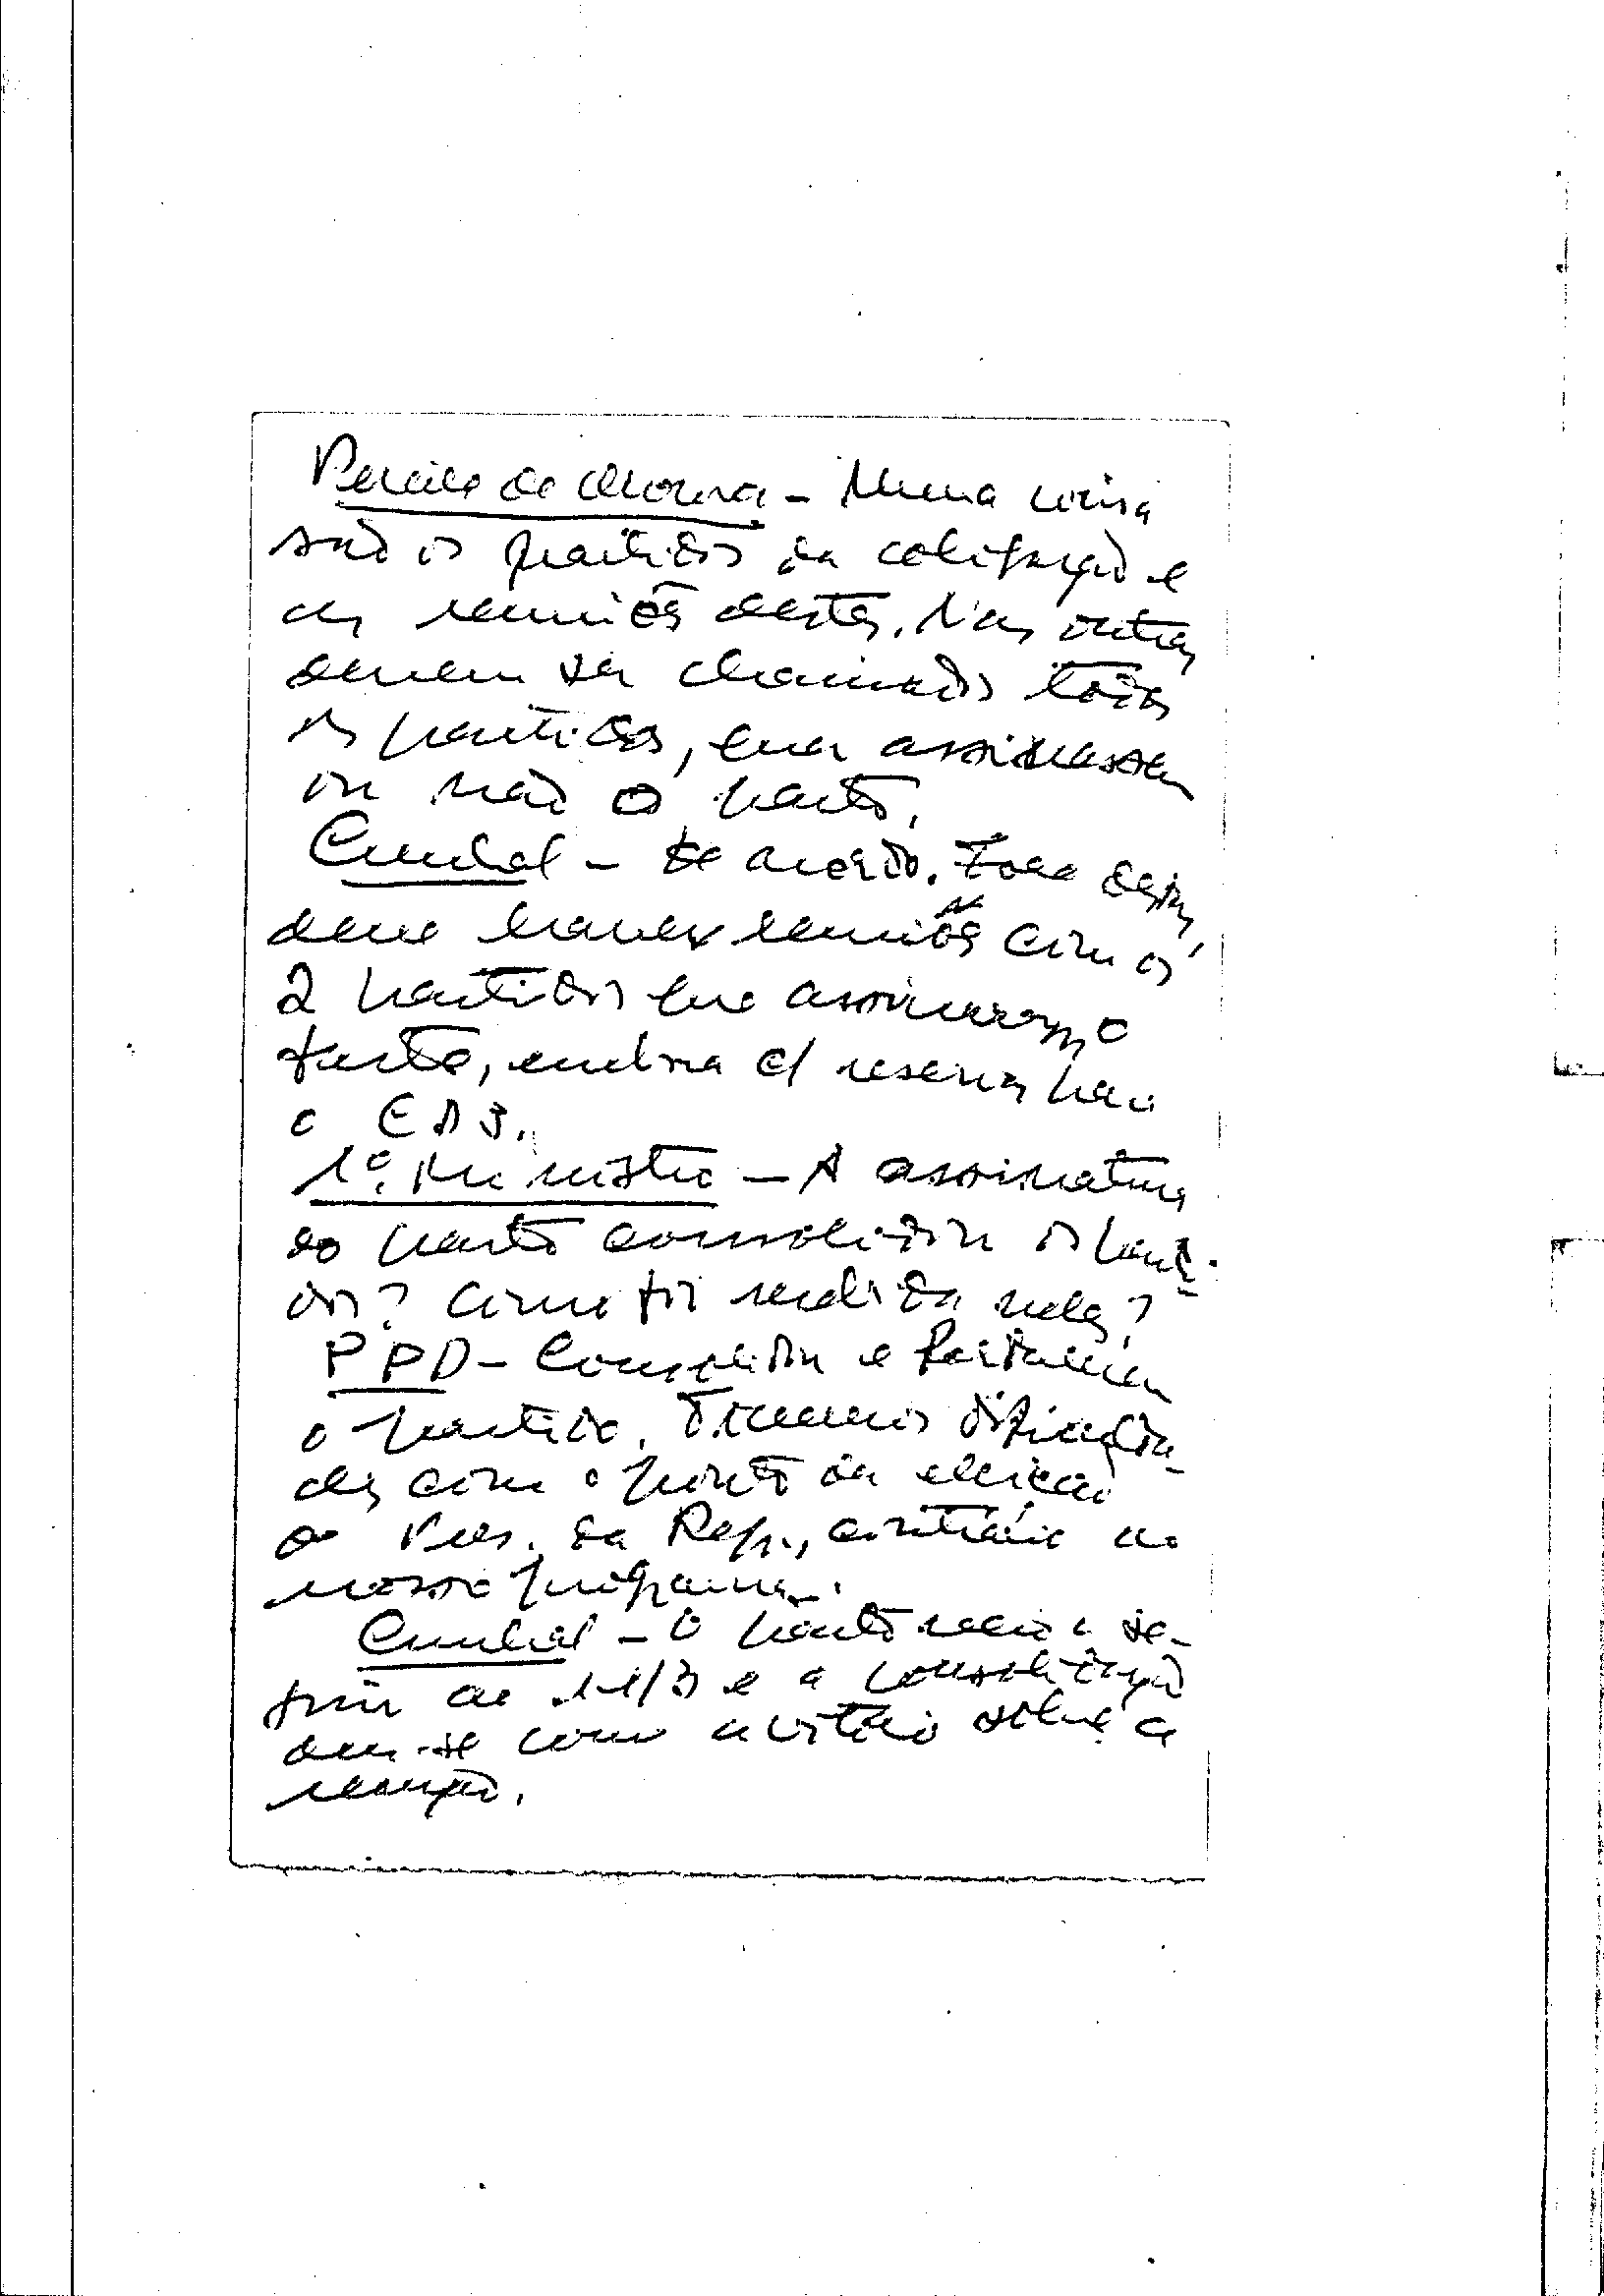 Pereira de Moura - Numa coisa
são os partidos da coligação e
as reuniões destes. Nas outras
devem ser chamados todos
os partidos, quer assinassem
ou não o pacto.
Cunhal - De acordo. Fora destas,
deve haver reuniões com os
2 partidos que assinaram o
pacto, embora c/ reservas para
o CDS.
1º. Ministro - A assinatura
do pacto consolidou os parti-
dos? Como foi medida nelas?
PPD - Consolidou e fortaleceu
o partido. Tivemos dificulda-
des com o ponto da eleição
do Pres. da Rep., contrário ao
nosso programa.
Cunhal - O pacto nasceu a se-
guir ao 11/3 e a consolidação
deu-se com a vitória sobre a
reacção.